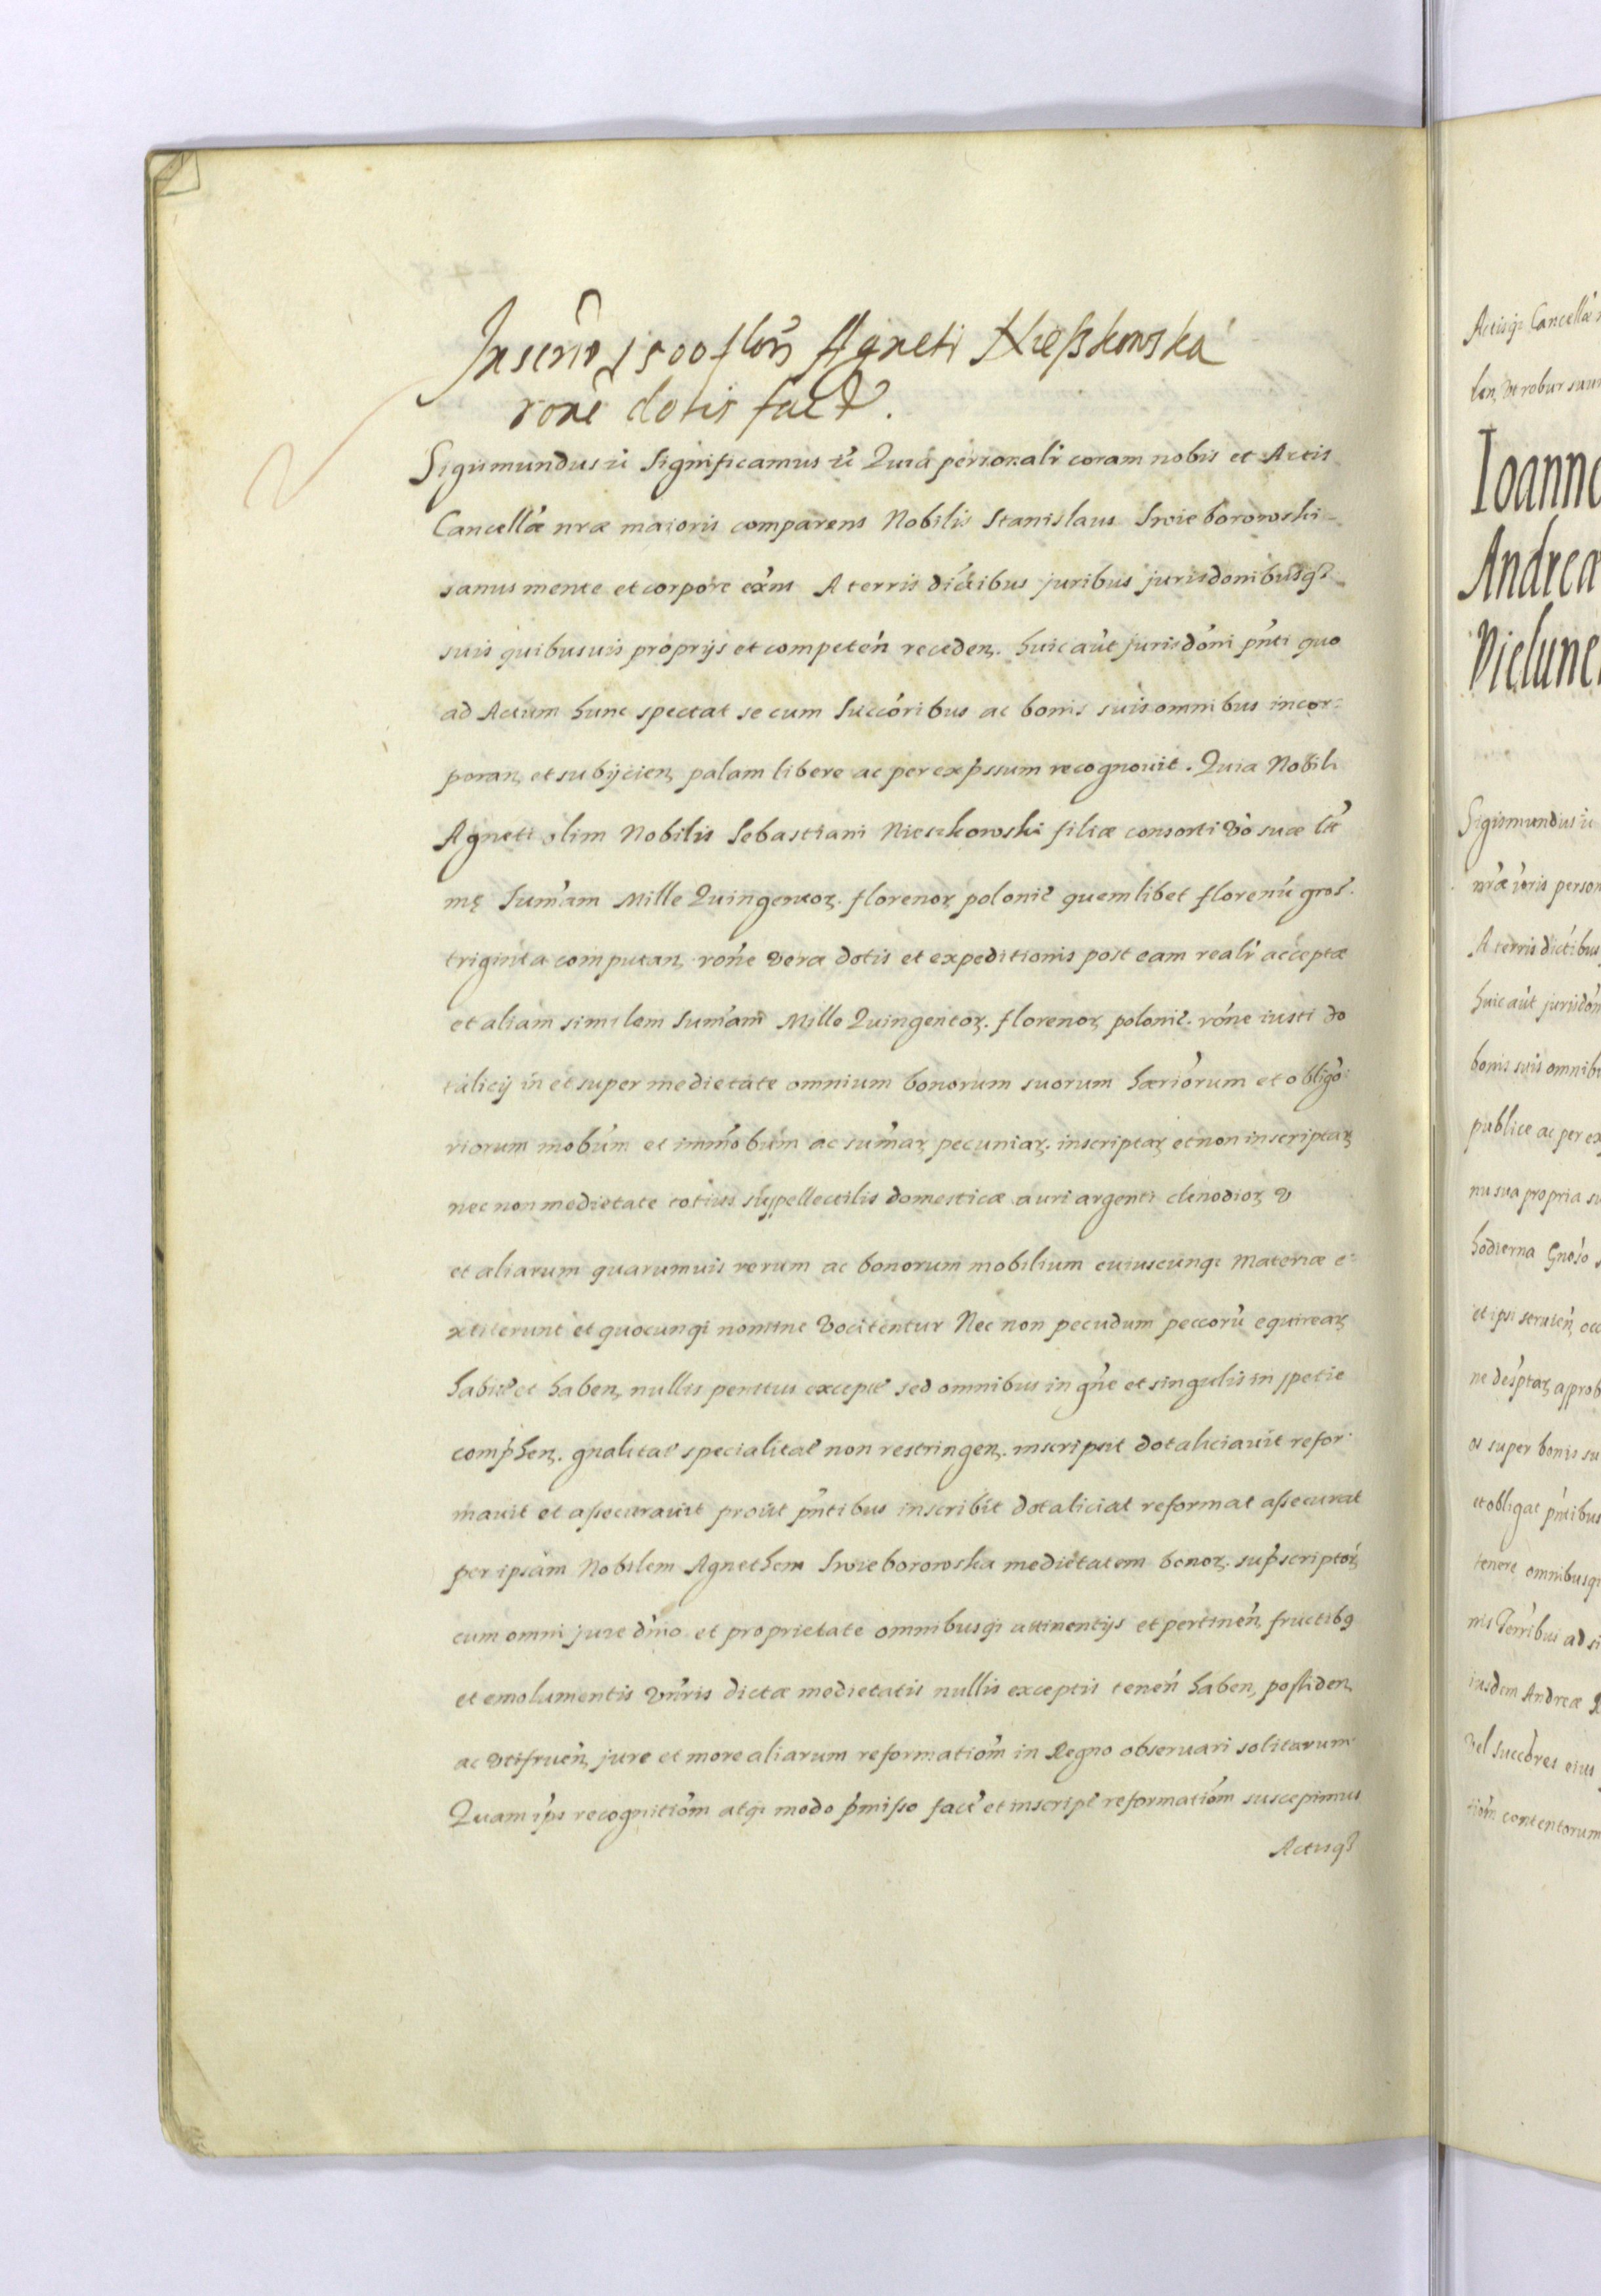 Inscrio 1500 flor Agneti Nießkowska
rone dotis fact.
Sigismundus ic Significamus ic Quia personalr coram nobis et Actis
Cancellæ nræ maioris comparens Nobilis Stanislaus Swieborowski
sanus mente et corpore exns A terris dictibus juribus jurisdonibusq3
suis quibusuis proprijs et competen receden. huic aut jurisdoni pnti quo
ad Actum hunc spectat se cum Succoribus ac bonis suis omnibus incor:
poran, et subijcien, palam libere ac per expssum recognouit. Quia Nobili
Agneti olim Nobilis Sebastiani Nieszkowski filiæ consorti vo suæ ltt
mę Sumam Mille Quingentoꝝ. florenoꝝ polonic quemlibet florenu gros.
triginta computan, rone veræ dotis et expeditionis post eam realr acceptæ
et aliam similem Sumam Mille Quingentoꝝ. florenoꝝ polonic. rone iusti do
talicij in et super medietate omnium bonorum suorum hæriorum et obligo:
riorum mobum et immobum ac sumaꝝ pecuniaꝝ. inscriptaꝝ et non inscriptaꝝ
nec non medietate totius suppellectilis domesticæ auri argenti clenodioꝝ v
et aliarum quarumuis rerum ac bonorum mobilium cuiuscunqe materiæ e:
xtiterunt et quocunqe nomine vocitentur Nec non pecudum peccoru equireaꝝ
habit et haben, nullis penitus except sed omnibus in gne et singulis in spetie
comphen. gnalitat specialitat non restringen. inscripsit dotaliciauit refor
mauit et assecurauit prout pntibus inscribit dotaliciat reformat assecurat
per ipsam Nobilem Agnethem Swieborowska medietatem bonoꝝ. supscriptoꝝ
cum omni jure dnio et proprietate omnibusqe attinentijs et pertinen, fructib9
et emolumentis vnuris dictæ medietatis nullis exceptis tenen haben, possiden,
ac vtifruen, jure et more aliarum reformatiom in Regno obseruari solitarum
Quam ips recognitiom atqe modo pmisso fact et inscript reformatiom suscepimus
Actusq3
Actusqe Cancellæ
ten, vt robur suum
Ioanne
Andrea
Vielune
Sigismundus ic
nræ ioris person
A terris dictibus
huic aut jurisdon
bonis suis omnibu
publice ac per ex
nu sua propria su
hodierna Gnoso
et ipsi seruien, occ
ne desptaꝝ, approb
os super bonis su
et obligat pntibus
tenere omnibusqe
nis Terribus ad si
iusdem Andreæ
vel succores eius
tiom contentorum